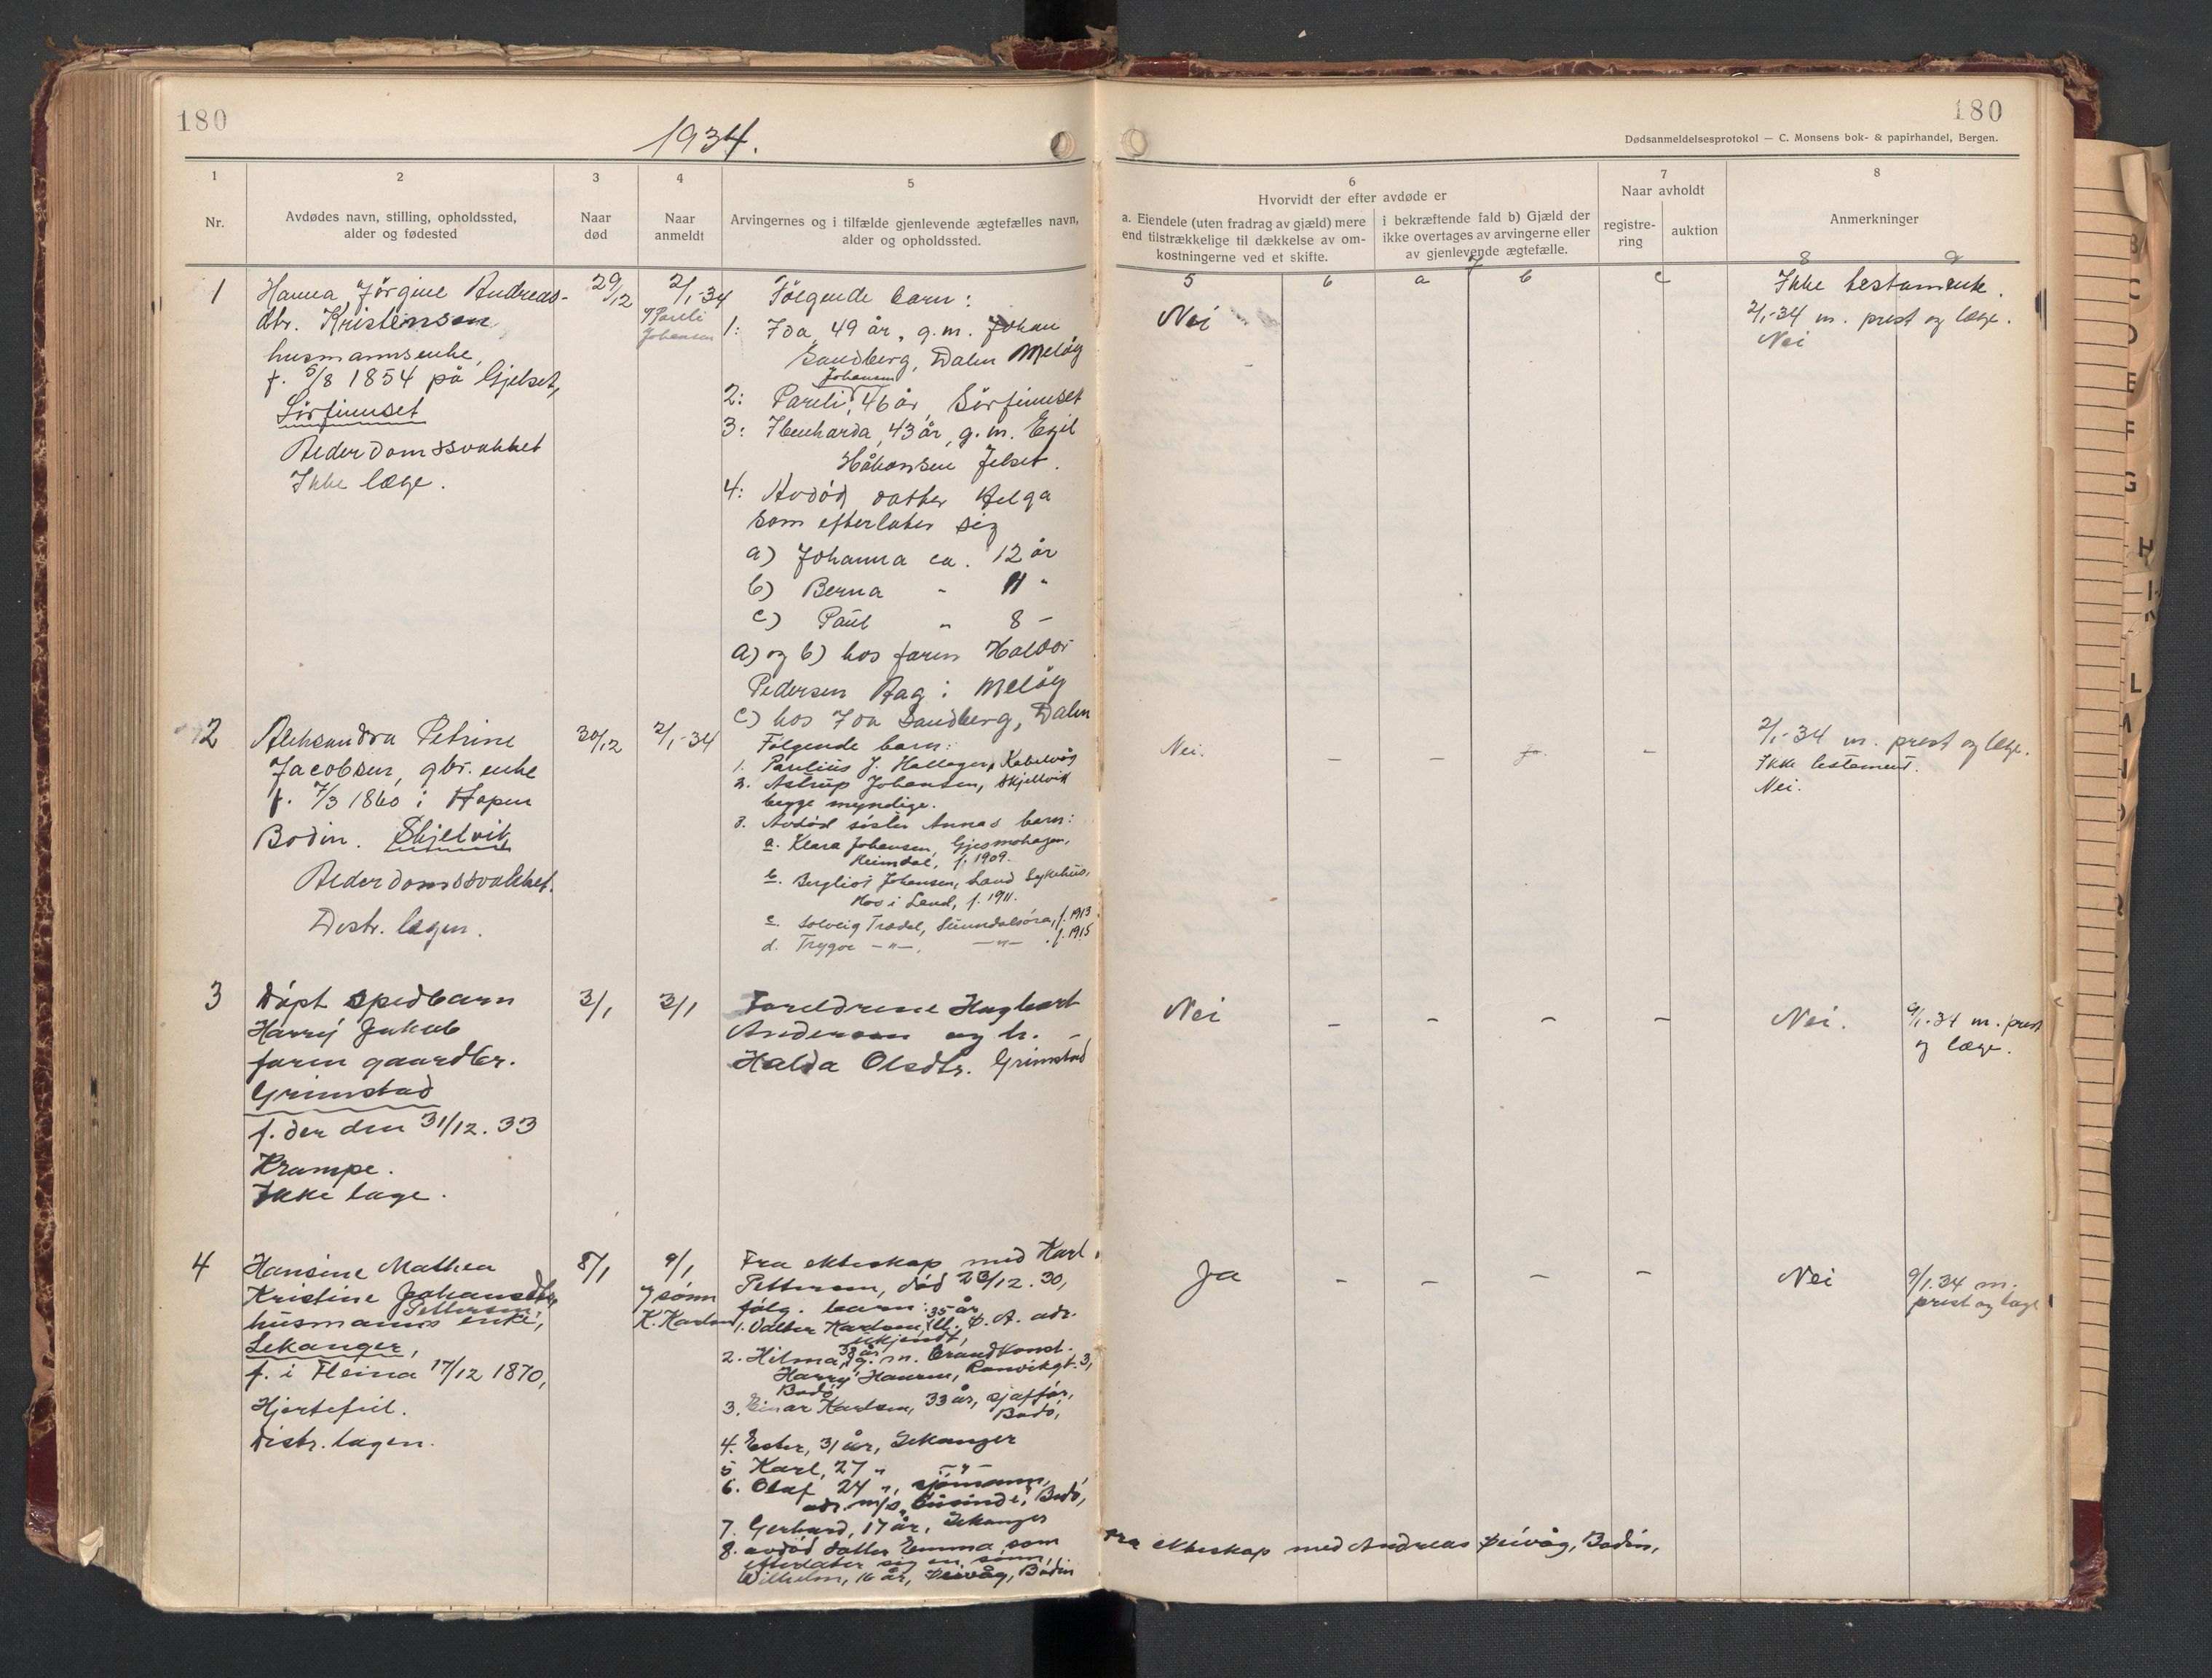 180
1934.
1
Nr.
2
Avdødes navn, stilling, opholdssted,
alder og fødested
3
Naar
død
4
Naar
anmeldt
5
Arvingernes og i tilfælde gjenlevende ægtefælles navn,
alder og opholdssted.
1
Hanna Jörgine Andreas-
dtr. Kristensen
husmannsenke,
f. 5/8 1854 på Gjelset,
Sörfinnset
Alderdomssvakhet
Ikke læge.
29/12
2/1-34
v/ Pareli
Johansen
Følgende barn:
1: Ida, 49 år, g.m. Johan
Sandberg, Dalen Meløy
Johansen
2: Pareli, 46 år, Sörfinnset
3: Ibenharda, 43 år, g.m. Egil
Håkonsen Jelset.
4: Avdöd datter Helga
som efterlater sig
a) Johanna ca. 12 år
b) Berna " 11 "
c) Paul " 8 -
a) og b) hos faren Haldor
Pedersen Aag i Meløy
c) hos Ida Sandberg, Dalen
2
Aleksandra Petrine
Jacobsen, gbr. enke
f. 7/3 1860 i Hopen
Bodin. Skjelvik
Alderdomssvakhet.
Distr. lægen.
30/12
2/1-34
Følgende barn:
1. Parelius J. Hallager, Kabelvåg
2. Astrup Johansen, Skjellvik
begge myndige.
3. Avdöd sister Annas barn:
a. Klara Johansen, Gjesmohagen,
Heimdal, f. 1909.
b. Bergliot Johansen, Land Sykehus,
Hov i Land, f. 1911.
c. Solveig Trædal, Sunndalsöra, f. 1913
d. Trygve -"-, -"- . f. 1915
3
Döpt spedbarn
Harry Jakob
faren gaardbr.
Grimstad
f. der den 31/12. 33
Krampe.
Ikke læge.
3/1
3/1
Foreldrene Hagbart
Andersen og h.
Halda Olsdtr. Grimstad
4
Hansine Mathea
Kristine Johansdtr,
Pettersen,
husmanns enke,
Sekanger,
f. i Fleina 17/12 1870,
Hjertefeil.
Distr. lægen.
8/1
9/1
v/ sönn
K. Karlsen
Fra ekteskap med Karl
Pettersen, död 23/12. 30,
følg. barn: 35 år
1. Valter Karlsen, U. S. A. adr.
ukjendt,
33 år
2. Hilma, g.m. brandkonst.
Harry Hansen, Rønvikgt. 3,
Bodö
3. Einar Karlsen, 33 år, sjafför,
Bodö,
4. Ester, 31 år, Sekanger
5 Karl, 27 " -"-
6. Olaf 24 ", sjömann,
adr. m/s Bodö,
7. Gerhard, 17 år, Sekanger
8. avdöd datter Emma som
efterlater sig en sönn,
Wilhelm, 16 år, Bodin
180
Dødsanmeldelsesprotokol — C. Monsens bok- & papirhandel, Bergen.
6
Hvorvidt der efter avdøde er
a. Eiendele (uten fradrag av gjæld) mere
end tilstrækkelige til dækkelse av om-
kostningerne ved et skifte.
i bekræftende fald b) Gjæld der
ikke overtages av arvingerne eller
av gjenlevende ægtefælle.
7
Naar avholdt
registre-
ring
auktion
8
Anmerkninger
5 6 a 7 b c 8 9
Nei
Ikke testamente.
2/1-34 m. prest og læge.
Nei
Nei. - - ja -
2/1-34 m. prest og læge.
Ikke testament.
Nei.
Nei - - - - Nei.
9/1-34 m. prest
og læge.
Ja - - - - Nei
9/1.34 m.
prest og læge
Fra ekteskap med Andreas Bodin,